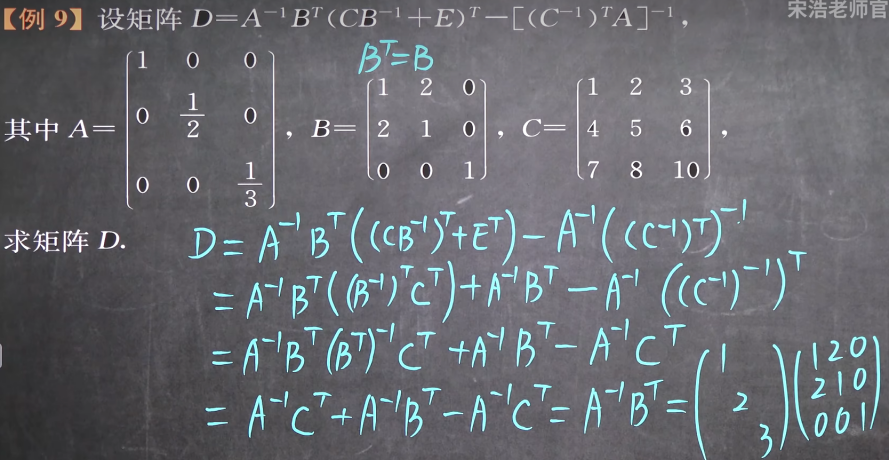 宋浩老师官
【例 9】设矩阵 D=A⁻¹Bᵀ(CB⁻¹+E)ᵀ-[(C⁻¹)ᵀA]⁻¹,
Bᵀ=B
其中 A= (1 0 0; 0 1/2 0; 0 0 1/3), B= (1 2 0; 2 1 0; 0 0 1), C= (1 2 3; 4 5 6; 7 8 10),
求矩阵 D.
D = A⁻¹Bᵀ((CB⁻¹)ᵀ+Eᵀ) - A⁻¹((C⁻¹)ᵀ)⁻¹
= A⁻¹Bᵀ((B⁻¹)ᵀCᵀ) + A⁻¹Bᵀ - A⁻¹((C⁻¹)⁻¹)ᵀ
= A⁻¹Bᵀ(Bᵀ)⁻¹Cᵀ + A⁻¹Bᵀ - A⁻¹Cᵀ
= A⁻¹Cᵀ + A⁻¹Bᵀ - A⁻¹Cᵀ = A⁻¹Bᵀ = (1 2 3) (1 2 0; 2 1 0; 0 0 1)